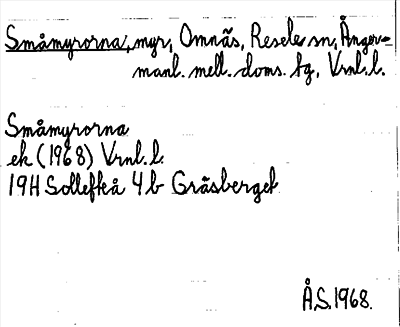 Småmyrorna, myr, Omnäs, Resele sn, Ånger-
manl. mell. doms. tg, Vrnl. l.
Småmyrorna
ek (1968) Vrnl. l.
19H Sollefteå 4b Gråsberget
Å.S. 1968.